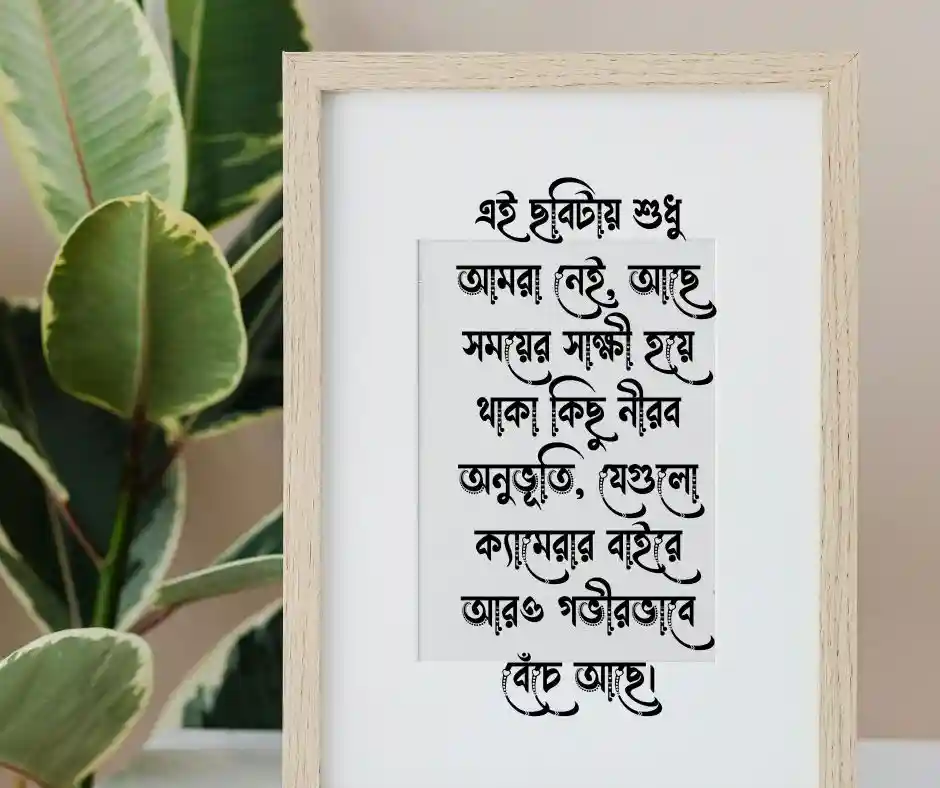 এই ছবিটায় শুধু
আমরা নেই, আছে
সময়ের সাক্ষী হয়ে
থাকা কিছু নীরব
অনুভূতি, যেগুলো
ক্যামেরার বাইরে
আরও গভীরভাবে
বেঁচে আছে।